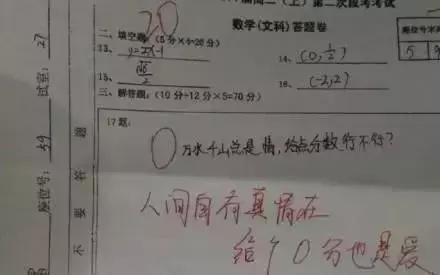 二(上)第二次段考考试
数学(文科)答题卷
20
二、填空题:(5分×4=20分)
13、 y=2x-1
14、 (0, 1/2)
15、
16、 (-2,2)
三、解答题:(10分+12分×5=70分)
17题:
0
万水千山总是情,给点分数行不行?
人间自有真情在
给个0分也是爱
试室: 27
座位号: 59
不要答题